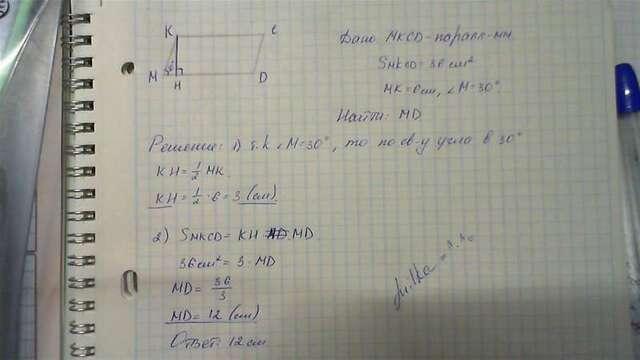 K C
M H D
Дано: MKCD-паралл-мм.
SMKCD = 36 см²
MK = 6 см, ∠M = 30°.
Найти: MD
Решение: 1) т.к ∠M=30°, то по св-у угла в 30°
KH = 1/2 MK.
KH = 1/2 · 6 = 3 (см).
2) SMKCD = KH · MD.
36 см² = 3 · MD
MD = 36/3
MD = 12 (см)
Ответ: 12 см